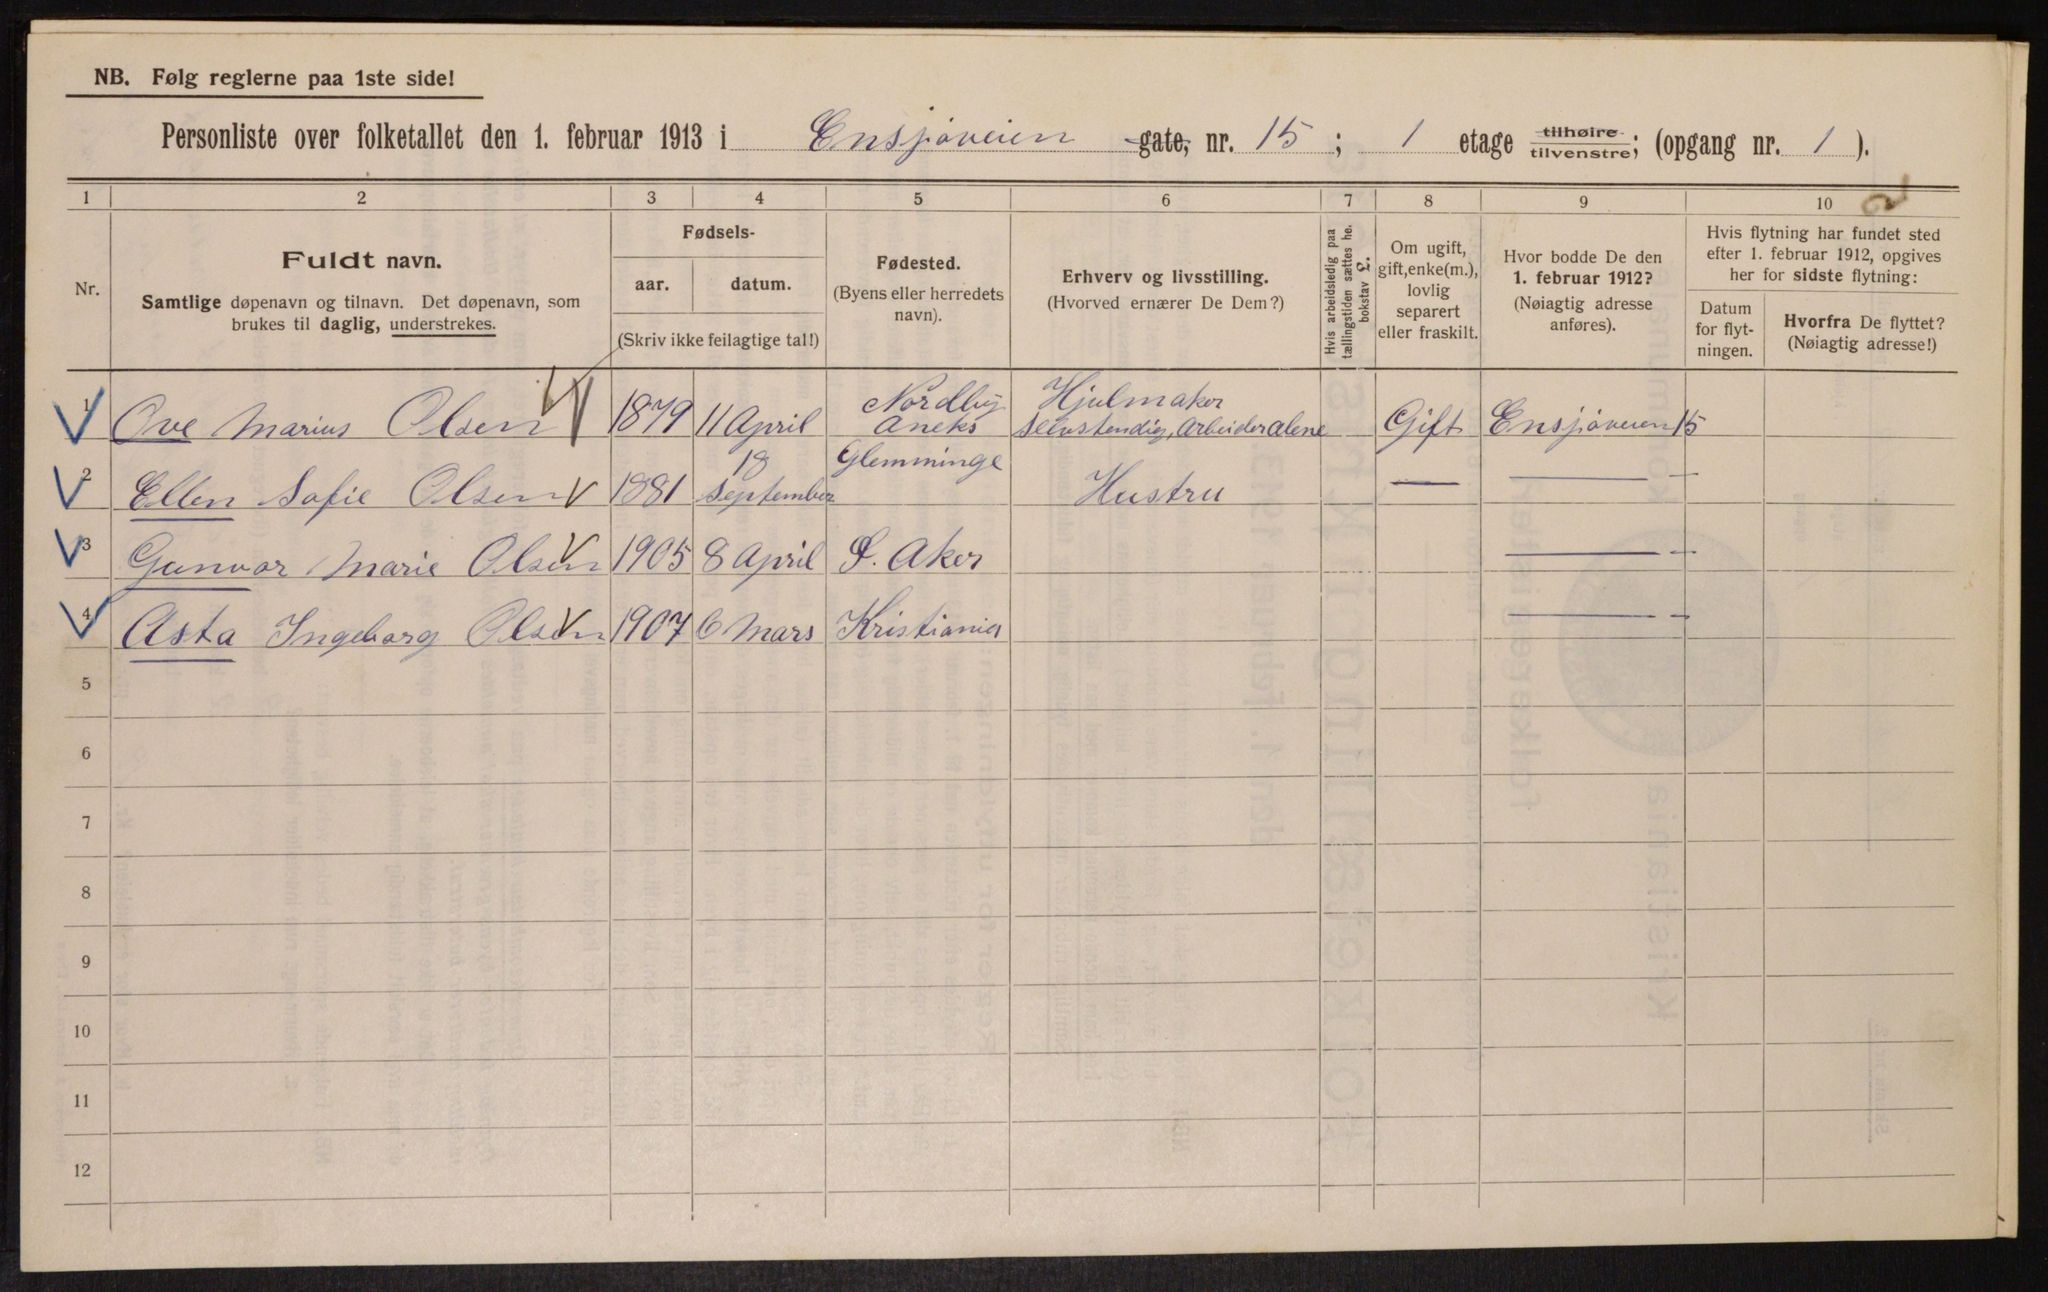 NB. Følg reglerne paa 1ste side!
Personliste over folketallet den 1. februar 1913 i Ensjøveien gate, nr. 15 ; 1 etage tilhøire tilvenstre; (opgang nr. 1 ).
1 2 3 4 5 6 7 8 9 10
Nr.
Fuldt navn.
Samtlige døpenavn og tilnavn. Det døpenavn, som
brukes til daglig, understrekes.
Fødsels-
aar. datum.
(Skriv ikke feilagtige tal!)
Fødested.
(Byens eller herredets
navn).
Erhverv og livsstilling.
(Hvorved ernærer De Dem?)
Hvis arbeidsledig paa
tællingstiden sættes he.
bokstav L.
Om ugift,
gift, enke(m.),
lovlig
separert
eller fraskilt.
Hvor bodde De den
1. februar 1912?
(Nøiagtig adresse
anføres).
Hvis flytning har fundet sted
efter 1. februar 1912, opgives
her for sidste flytning:
Datum
for flyt-
ningen.
Hvorfra De flyttet?
(Nøiagtig adresse!)
1 Ove Marius Olsen 1879 11 April Nordby Aneks Hjulmaker selvstendig, Arbeider alene Gift Ensjøveien 15
2 Ellen Sofie Olsen 1881 18 September Glemminge Hustru — —
3 Gunvor Marie Olsen 1905 8 April Ø. Aker —
4 Asta Ingeborg Olsen 1907 6 Mars Kristiania —
5
6
7
8
9
10
11
12